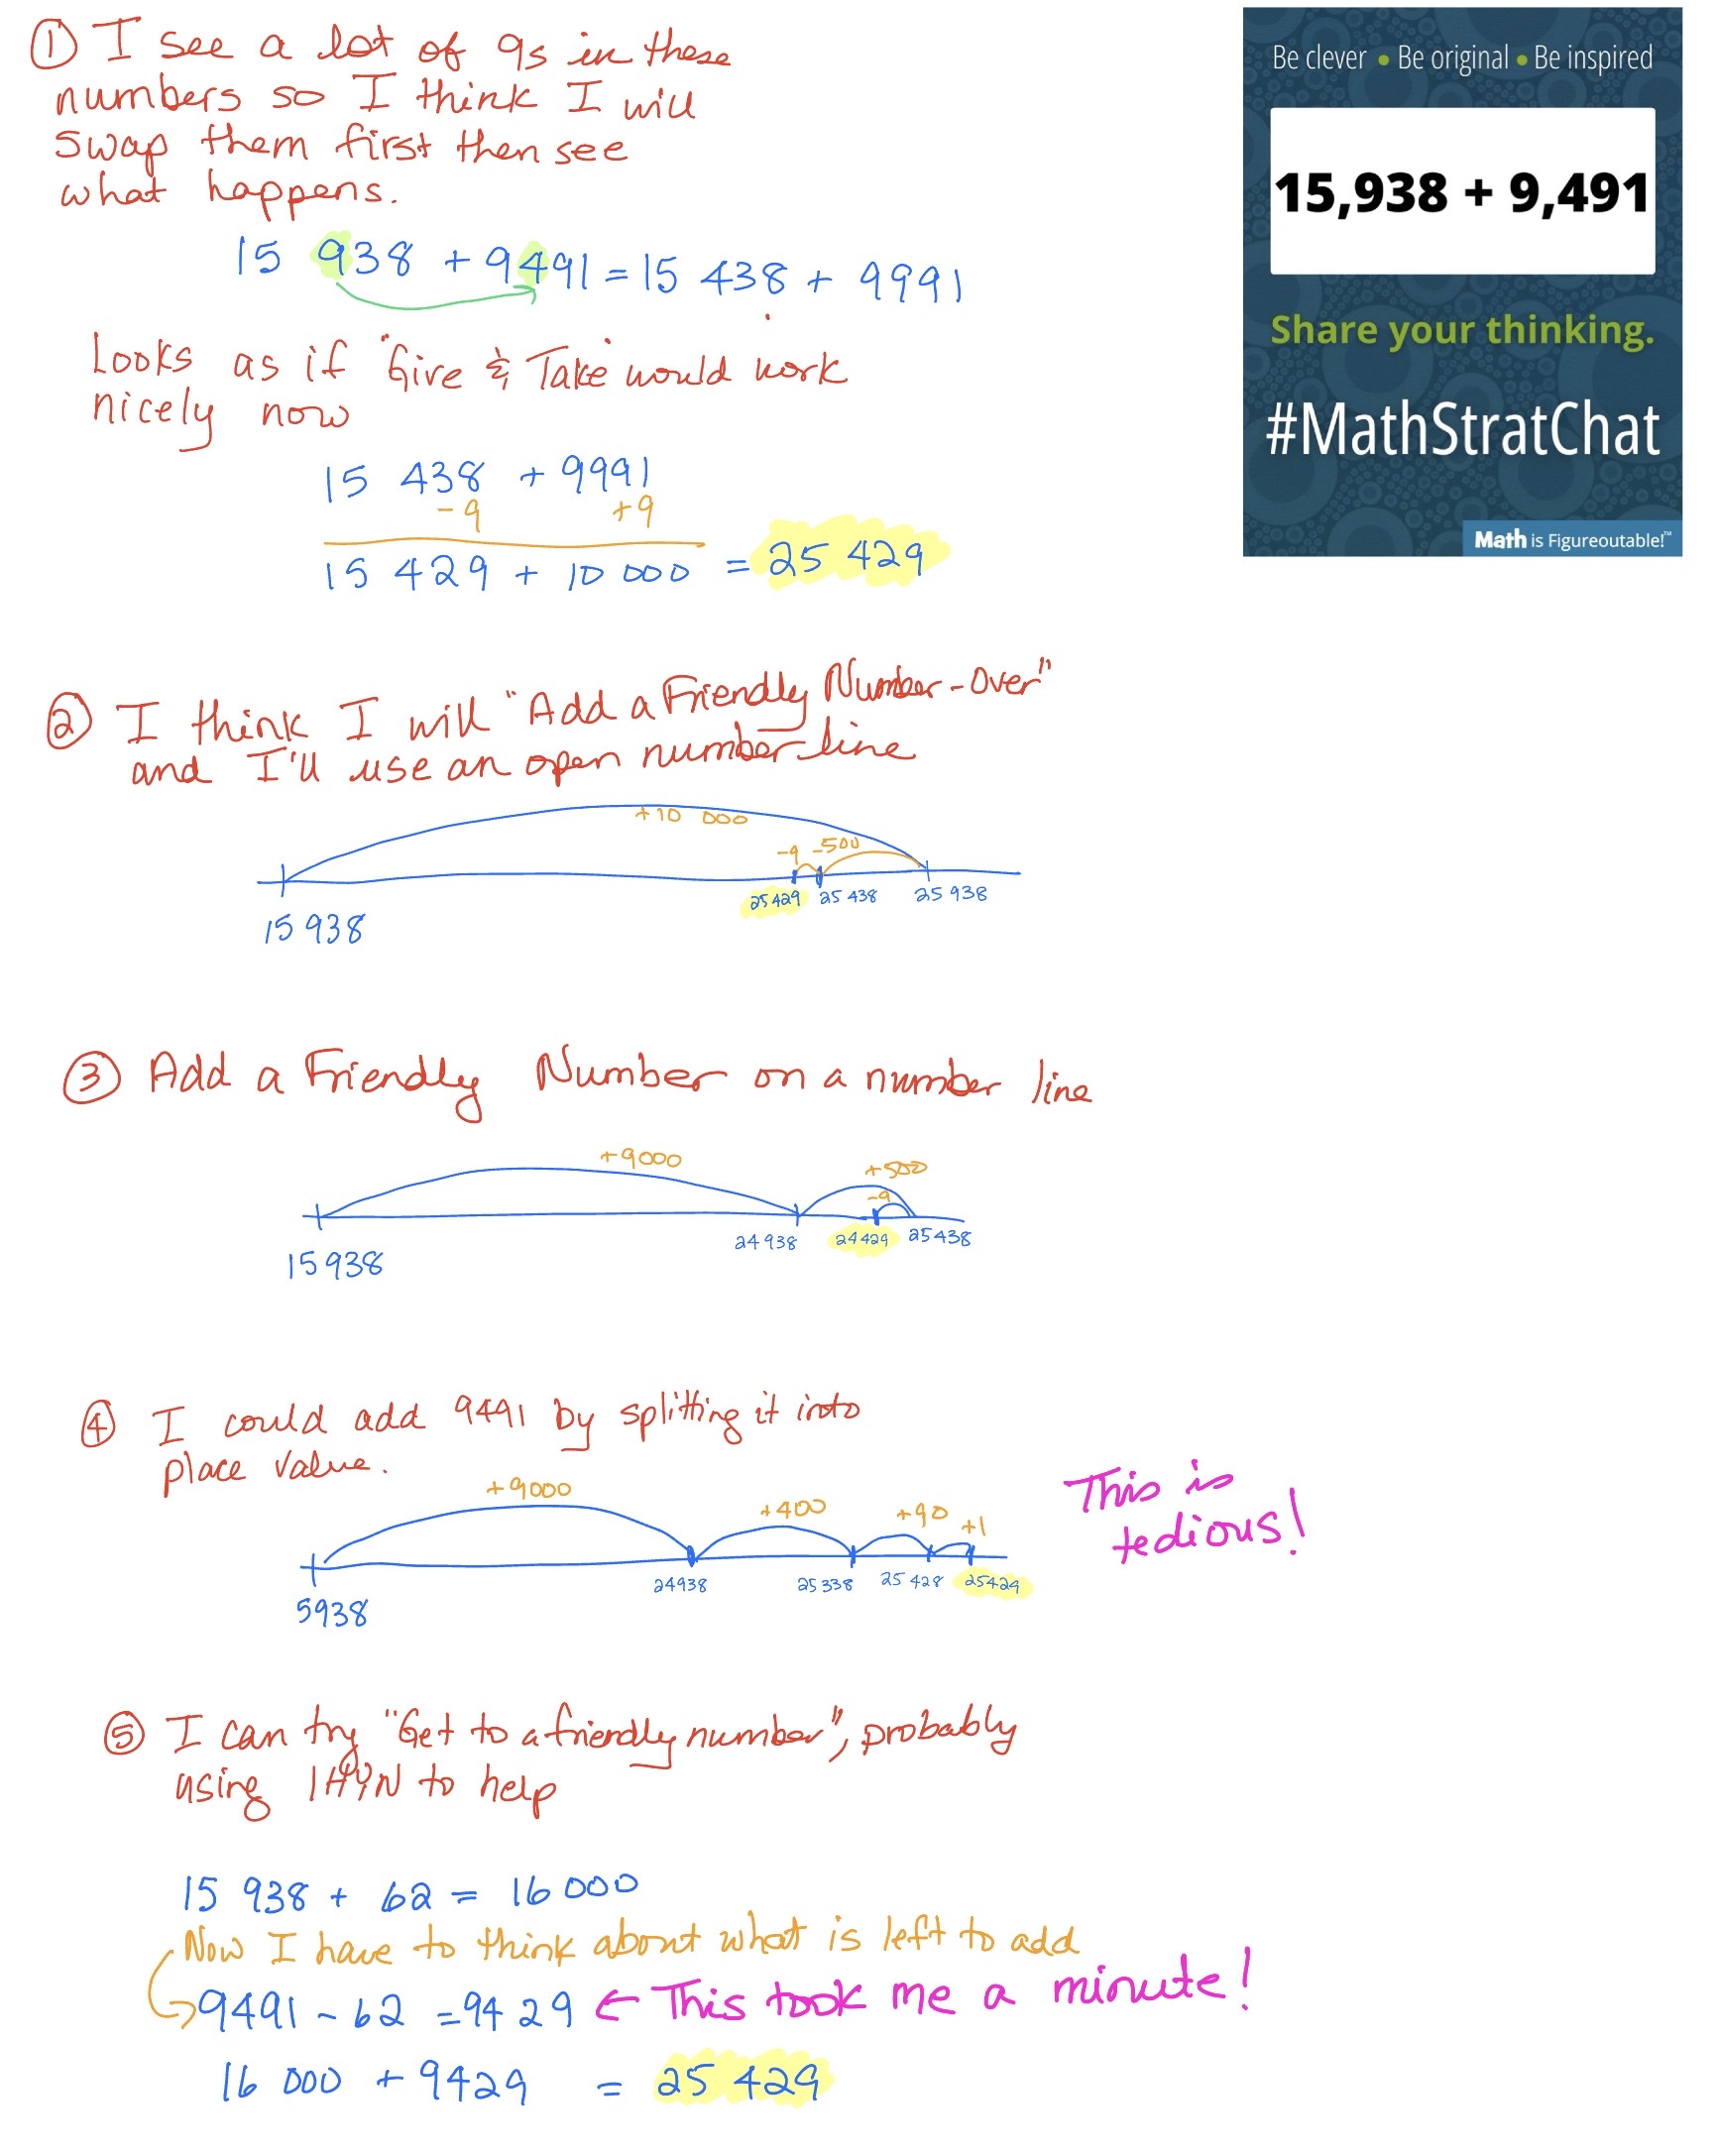 ① I see a lot of 9s in these
numbers so I think I will
swap them first then see
what happens.
15 938 + 9491 = 15 438 + 9991
Looks as if "Give & Take" would work
nicely now
15 438 + 9991
-9 +9
15 429 + 10 000 = 25 429
Be clever • Be original • Be inspired
15,938 + 9,491
Share your thinking.
#MathStratChat
Math is Figureoutable!™
② I think I will "Add a Friendly Number-Over"
and I'll use an open number line
+10 000
-9 -500
25 429 25 438 25 938
15 938
③ Add a Friendly Number on a number line
+9000 +500
-9
24 938 24 429 25 438
15 938
④ I could add 9491 by splitting it into
place value.
+9000 +400 +90 +1
24938 25 338 25 428 25429
5938
This is
tedious!
⑤ I can try "Get to a friendly number", probably
using IHYN to help
15 938 + 62 = 16 000
Now I have to think about what is left to add
9491 - 62 = 9429 ← This took me a minute!
16 000 + 9429 = 25 429